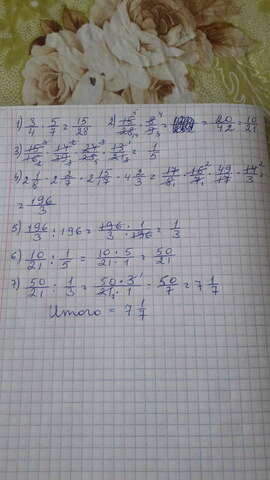 1) 3/4 · 5/7 = 15/28 2) 15/28 · 8/9 = = 20/42 = 10/21
3) = 1/5
4) 2 1/8 · 2 2/7 · 2 15/17 · 4 2/3 = 17/8 · 16/7 · 49/17 · 14/3 =
= 196/3
5) 196/3 : 196 = 196 · 1/3 · 196 = 1/3
6) 10/21 : 1/5 = 10 · 5/21 · 1 = 50/21
7) 50/21 : 1/3 = 50 · 3/21 · 1 = 50/7 = 7 1/7
Итого = 7 1/7